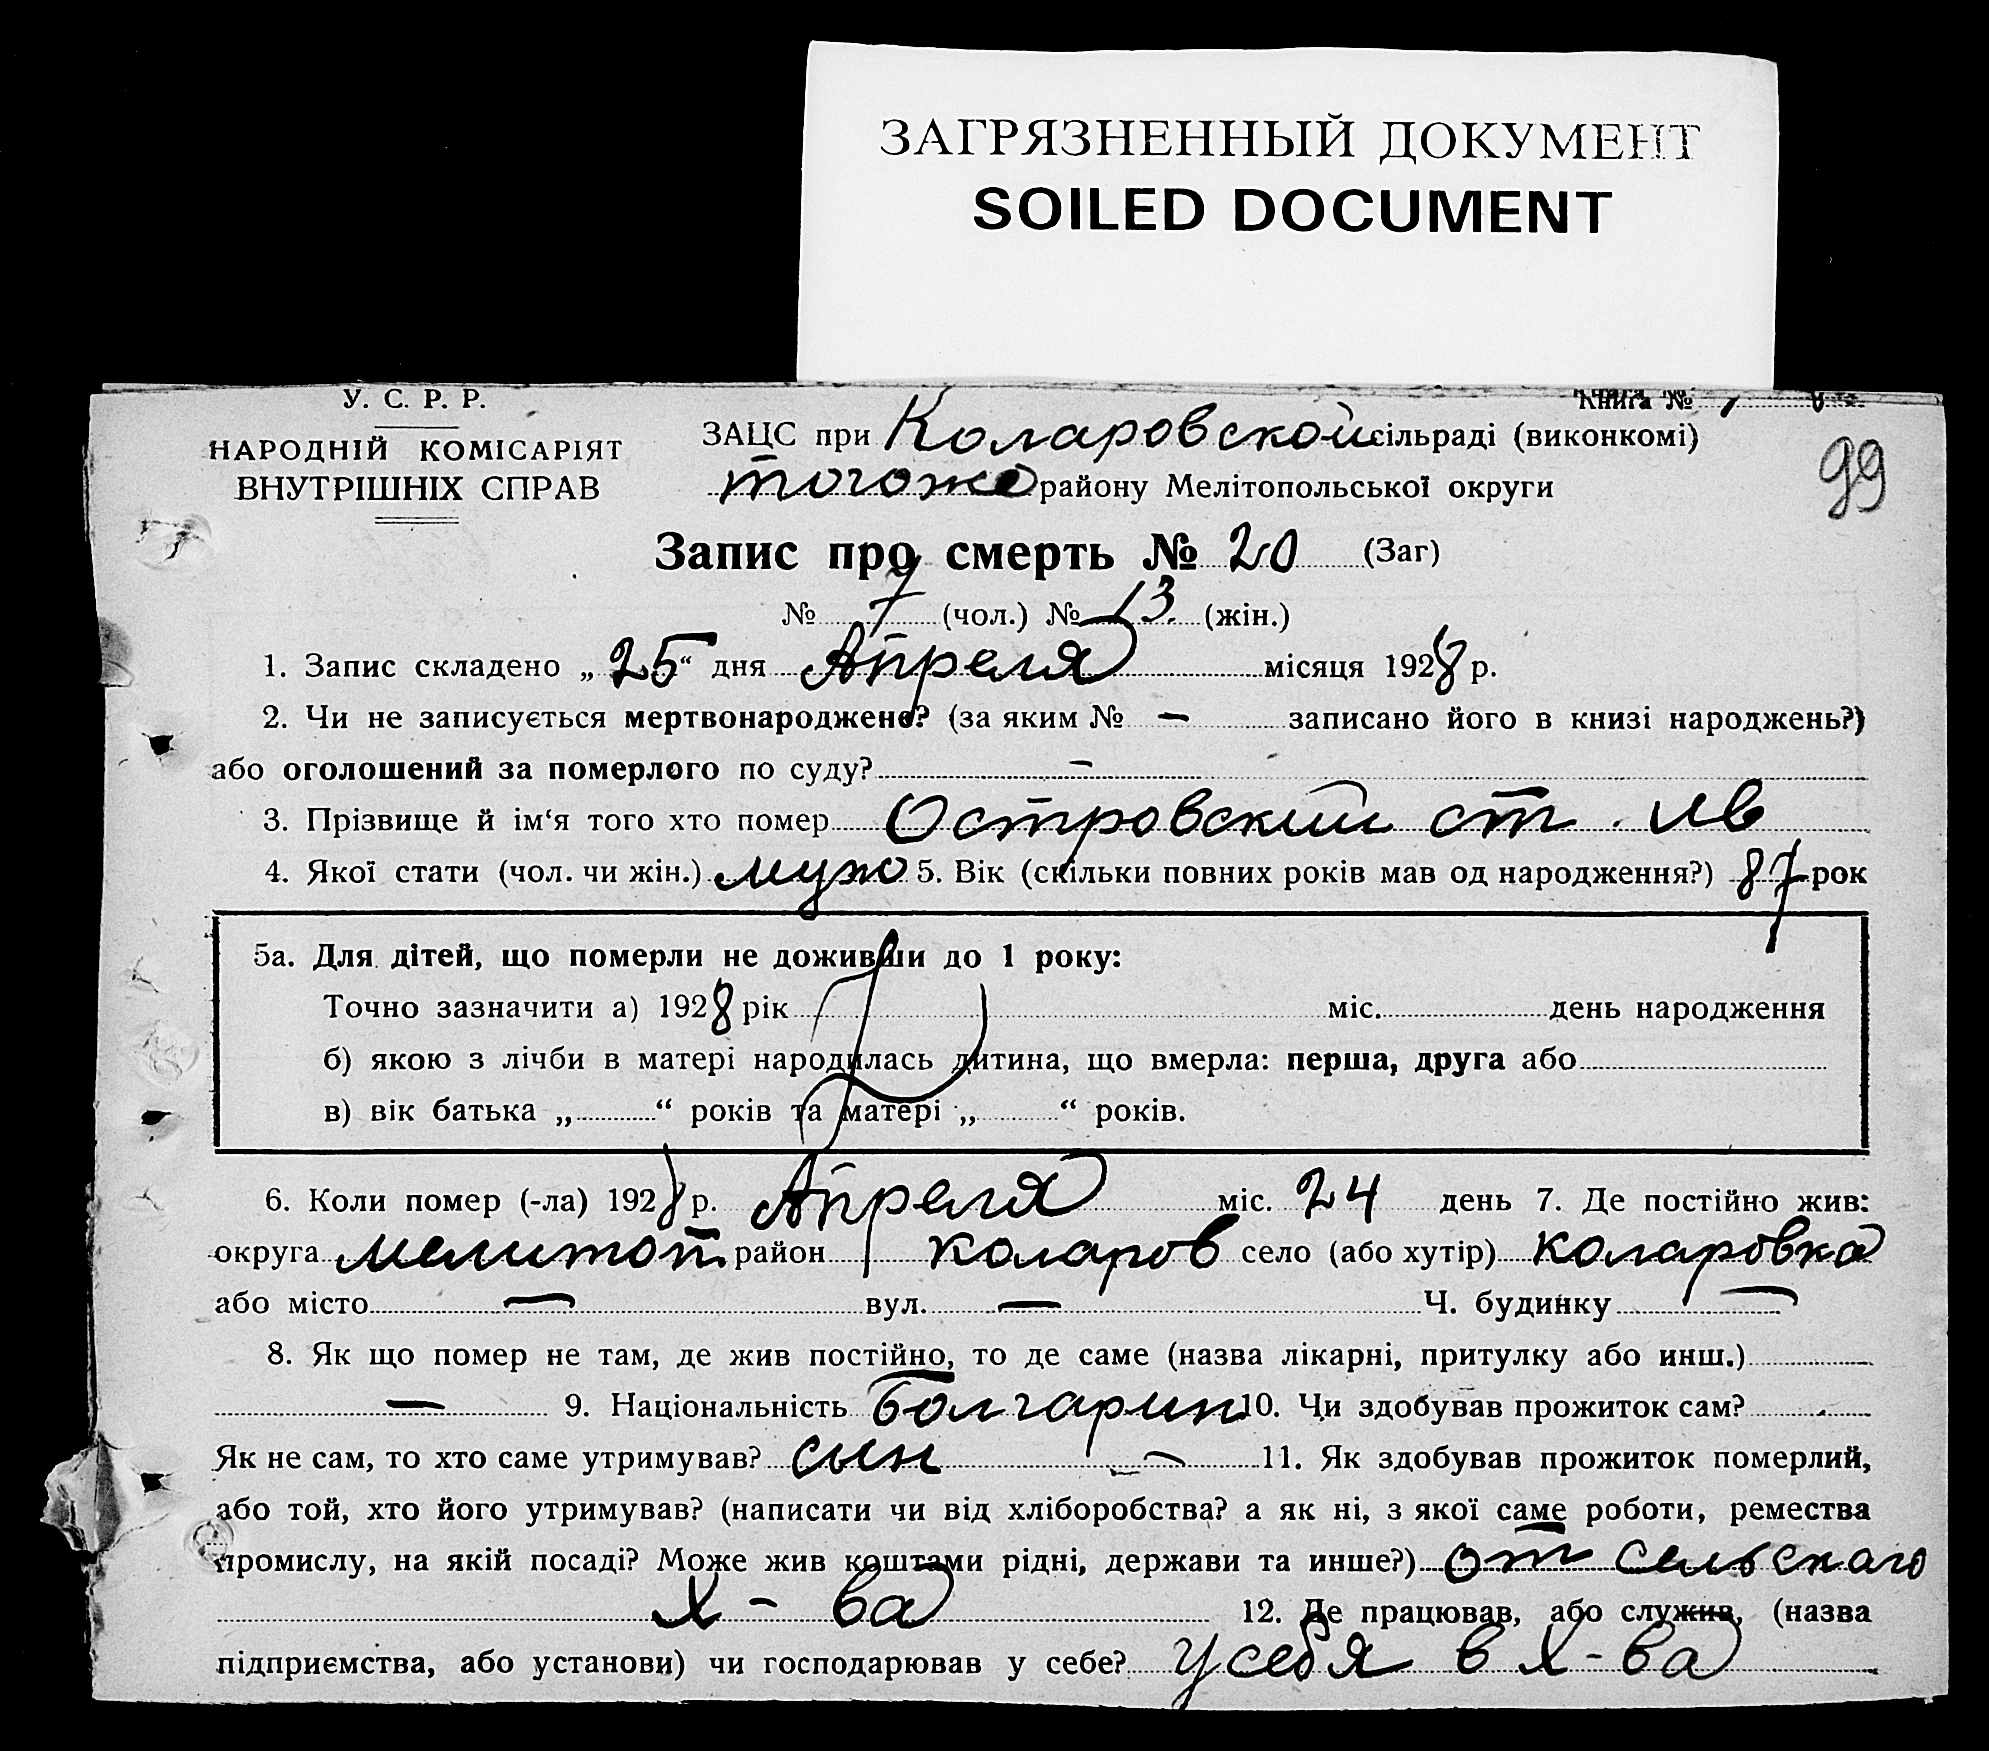 ЗАГРЯЗНЕННЫЙ ДОКУМЕНТ
SOILED DOCUMENT
У. С. Р. Р.
НАРОДНІЙ КОМІСАРІЯТ
ВНУТРІШНІХ СПРАВ
Книга №
99
ЗАЦС при Коларовской сільраді (виконкомі)
тогоже району Мелітопольської округи
Запис про смерть № 20 (Заг)
№ 7 (чол.) № 13. (жін.)
1. Запис складено „25“ дня Апреля місяця 1928 р.
2. Чи не записується мертвонароджене? (за яким № — записано його в книзі народжень?)
або оголошений за померлого по суду? —
3. Прізвище й ім‘я того хто помер Островский ст. Ив
4. Якої стати (чол. чи жін.) муж 5. Вік (скільки повних років мав од народження?) 87 рок
5а. Для дітей, що померли не доживши до 1 року:
Точно зазначити а) 1928 рік міс. день народження
б) якою з лічби в матері народилась дитина, що вмерла: перша, друга або
в) вік батька „ “ років та матері „ “ років.
6. Коли помер (-ла) 1928 р. Апреля міс. 24 день 7. Де постійно жив:
округа Мелитоп. район Коларов село (або хутір) Коларовка
або місто — вул. — Ч. будинку —
8. Як що помер не там, де жив постійно, то де саме (назва лікарні, притулку або инш.)
— 9. Національність Болгарин 10. Чи здобував прожиток сам?
Як не сам, то хто саме утримував? сын — 11. Як здобував прожиток померлий,
або той, хто його утримував? (написати чи від хліборобства? а як ні, з якої саме роботи, ремества
промислу, на якій посаді? Може жив коштами рідні, держави та инше?) от сельскаго
х-ва 12. Де працював, або служив, (назва
підприємства, або установи) чи господарював у себе? у себя в х-ва